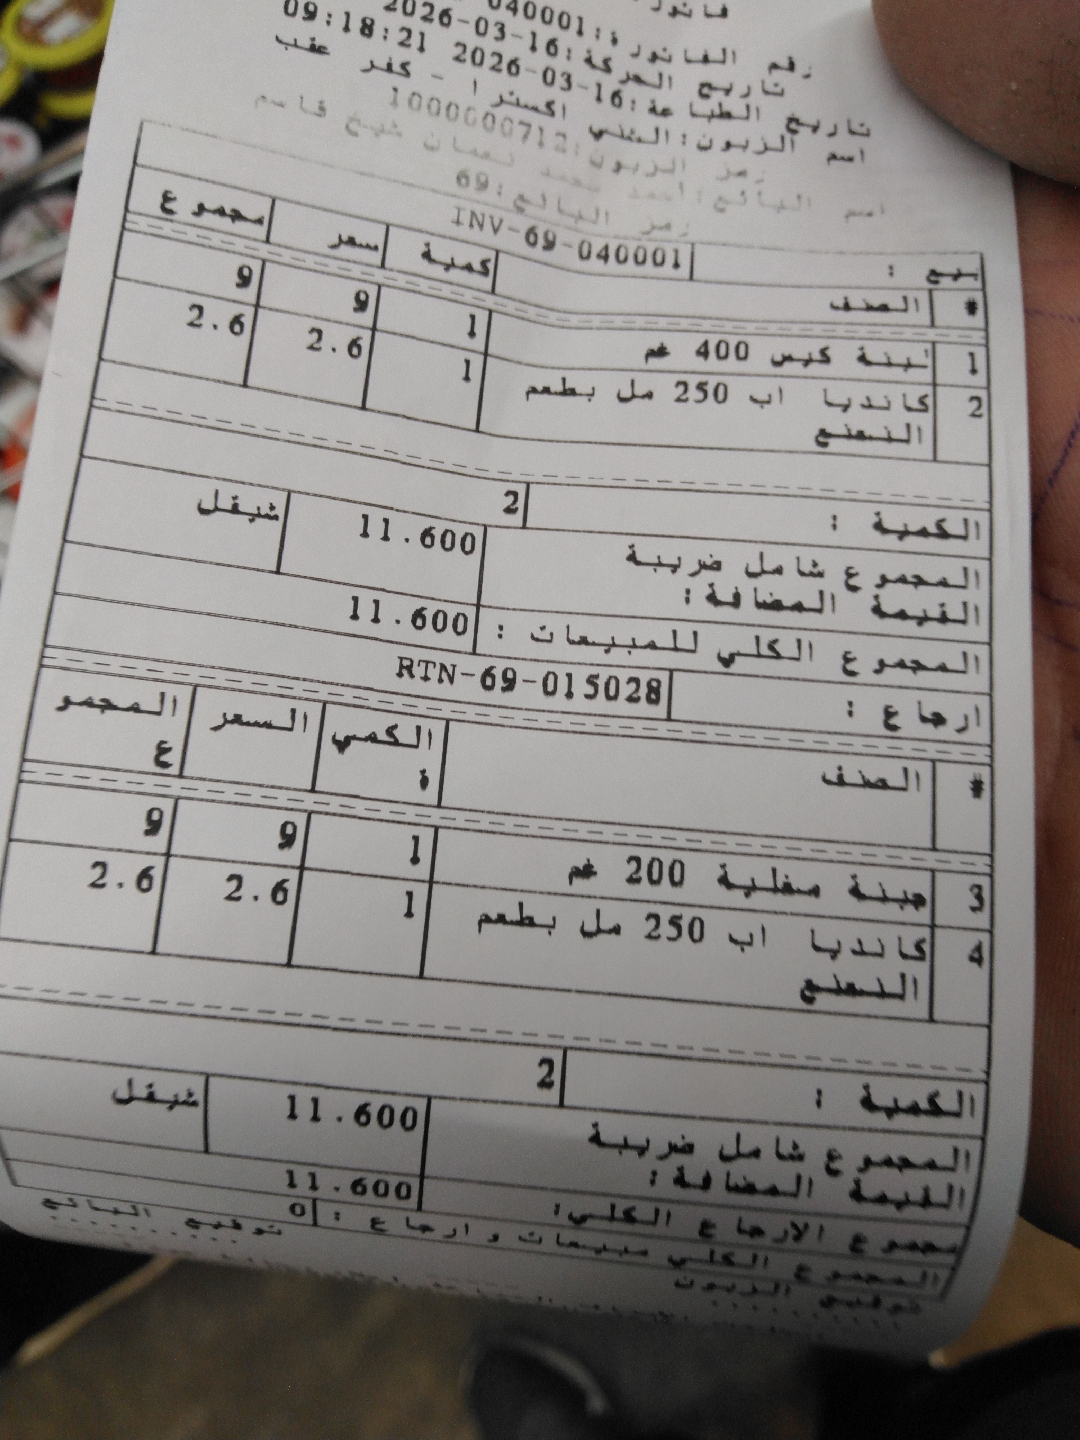 فاتور
رقم الفاتورة:040001
تاريخ الحركة:16-03-2026
تاريخ الطباعة:16-03-2026 09:18:21
اسم الزبون:الثني اكسترا - كفر عقب
رمز الزبون:1000000712
اسم البائع:أحمد محمد نعمان شيخ قاسم
رمز البائع:69
بيع : INV-69-040001
# الصنف كمية سعر مجموع
1 لبنة كيس 400 غم 1 9 9
2 كانديا اب 250 مل بطعم 1 2.6 2.6
النعنع
الكمية : 2
المجموع شامل ضريبة 11.600 شيقل
القيمة المضافة:
المجموع الكلي للمبيعات : 11.600
ارجاع : RTN-69-015028
# الصنف الكمي السعر المجمو
ة ع
3 جبنة مغلية 200 غم 1 9 9
4 كانديا اب 250 مل بطعم 1 2.6 2.6
النعنع
الكمية : 2
المجموع شامل ضريبة 11.600 شيقل
القيمة المضافة:
مجموع الارجاع الكلي: 11.600
المجموع الكلي مبيعات و ارجاع : 0
توقيع الزبون توقيع البائع